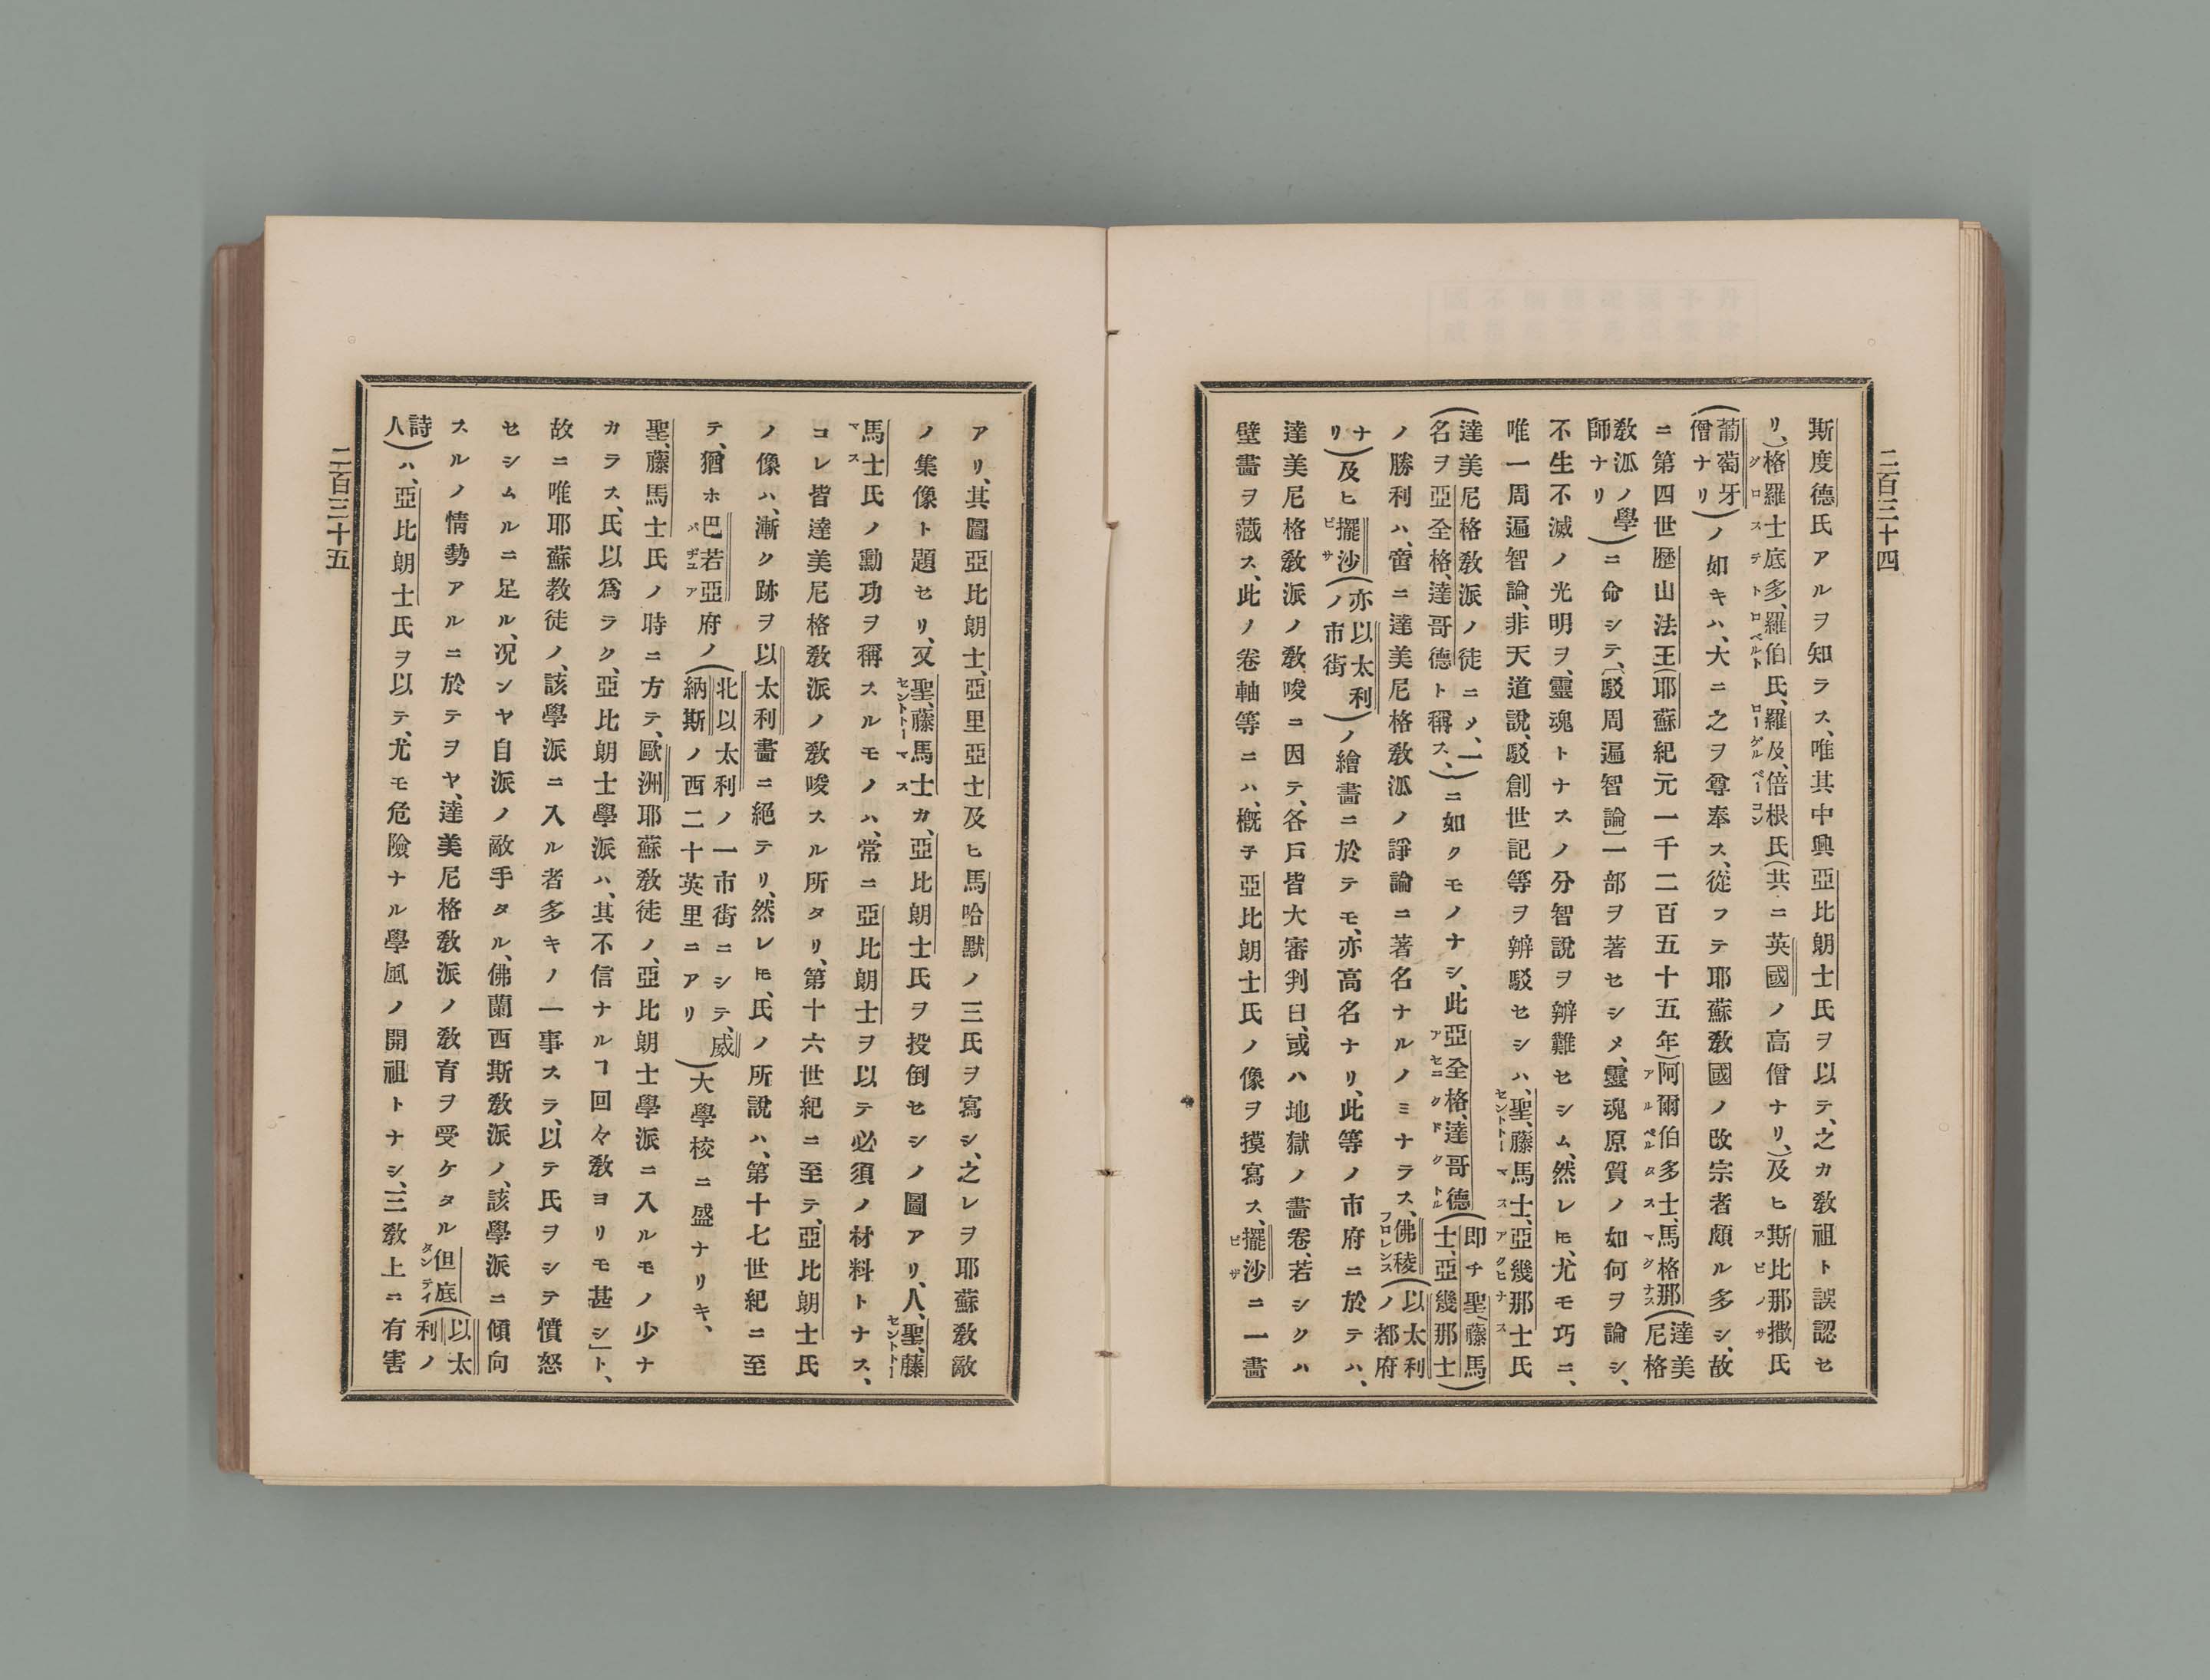 二百三十四
斯度德氏アルヲ知ラス、唯其中興亞比朗士氏ヲ以テ、之カ敎祖ト誤認セ
リ、)格羅士底多、羅伯氏、羅及、倍根氏(共ニ英國ノ高僧ナリ、)及ヒ斯比那撒氏
グロステト ロベルト ローゲル ベーコン スピノサ
(葡萄牙僧ナリ)ノ如キハ、大ニ之ヲ尊奉ス、從フテ耶蘇敎國ノ改宗者頗ル多シ、故
ニ第四世歷山法王(耶蘇紀元一千二百五十五年)阿爾伯多士、馬格那(達美尼格
アルベルタス マグナス
敎派ノ學師ナリ)ニ命シテ、(駁周遍智論)一部ヲ著セシメ、靈魂原質ノ如何ヲ論シ、
不生不滅ノ光明ヲ、靈魂トナスノ分智說ヲ辨難セシム、然レ𪜈、尤モ巧ニ、
唯一周遍智論、非天道說、駁創世記等ヲ辨駁セシハ、聖、藤馬士、亞幾那士氏
セントトーマス アクヒナス
(達美尼格敎派ノ徒ニメ、一名ヲ亞全格、達哥德ト稱ス、)ニ如クモノナシ、此亞全格、達哥德(即チ聖、藤馬士、亞幾那士)
アセニク ドクトル
ノ勝利ハ、啻ニ達美尼格敎派ノ諍論ニ著名ナルノミナラス、佛稜(以太利ノ都府
フロレンス
ナリ)及ヒ擺沙(亦以太利ノ市街)ノ繪畵ニ於テモ、亦高名ナリ、此等ノ市府ニ於テハ、
ピサ
達美尼格敎派ノ敎唆ニ因テ、各戶皆大審判日、或ハ地獄ノ畵卷、若シクハ
壁畵ヲ藏ス、此ノ卷軸等ニハ、槪子亞比朗士氏ノ像ヲ摸寫ス、擺沙ニ一畵
ピザ
アリ、其圖亞比朗士、亞里亞士及ヒ馬哈默ノ三氏ヲ寫シ、之レヲ耶蘇敎敵
ノ集像ト題セリ、又聖、藤馬士カ、亞比朗士氏ヲ投倒セシノ圖アリ、人、聖、藤
セントトーマス セントトー
馬士氏ノ勳功ヲ稱スルモノハ、常ニ亞比朗士ヲ以テ必須ノ材料トナス、
マス
コレ皆達美尼格敎派ノ敎唆スル所タリ、第十六世紀ニ至テ、亞比朗士氏
ノ像ハ、漸ク跡ヲ以太利畵ニ絕テリ、然レ𪜈、氏ノ所說ハ、第十七世紀ニ至
テ、猶ホ巴若亞府ノ(北以太利ノ一市街ニシテ、威納斯ノ西二十英里ニアリ)大學校ニ盛ナリキ、
パヂユア
聖、藤馬士氏ノ時ニ方テ、歐洲耶蘇敎徒ノ、亞比朗士學派ニ入ルモノ少ナ
カラス、氏以爲ラク、亞比朗士學派ハ、其不信ナルヿ回々敎ヨリモ甚シ」ト、
故ニ唯耶蘇教徒ノ、該學派ニ入ル者多キノ一事スラ、以テ氏ヲシテ憤怒
セシムルニ足ル、况ンヤ自派ノ敵手タル、佛蘭西斯敎派ノ、該學派ニ傾向
スルノ情勢アルニ於テヲヤ、達美尼格敎派ノ敎育ヲ受ケタル但底(以太利ノ
タンテイ
詩人)ハ、亞比朗士氏ヲ以テ、尤モ危險ナル學風ノ開祖トナシ、三敎上ニ有害
二百三十五